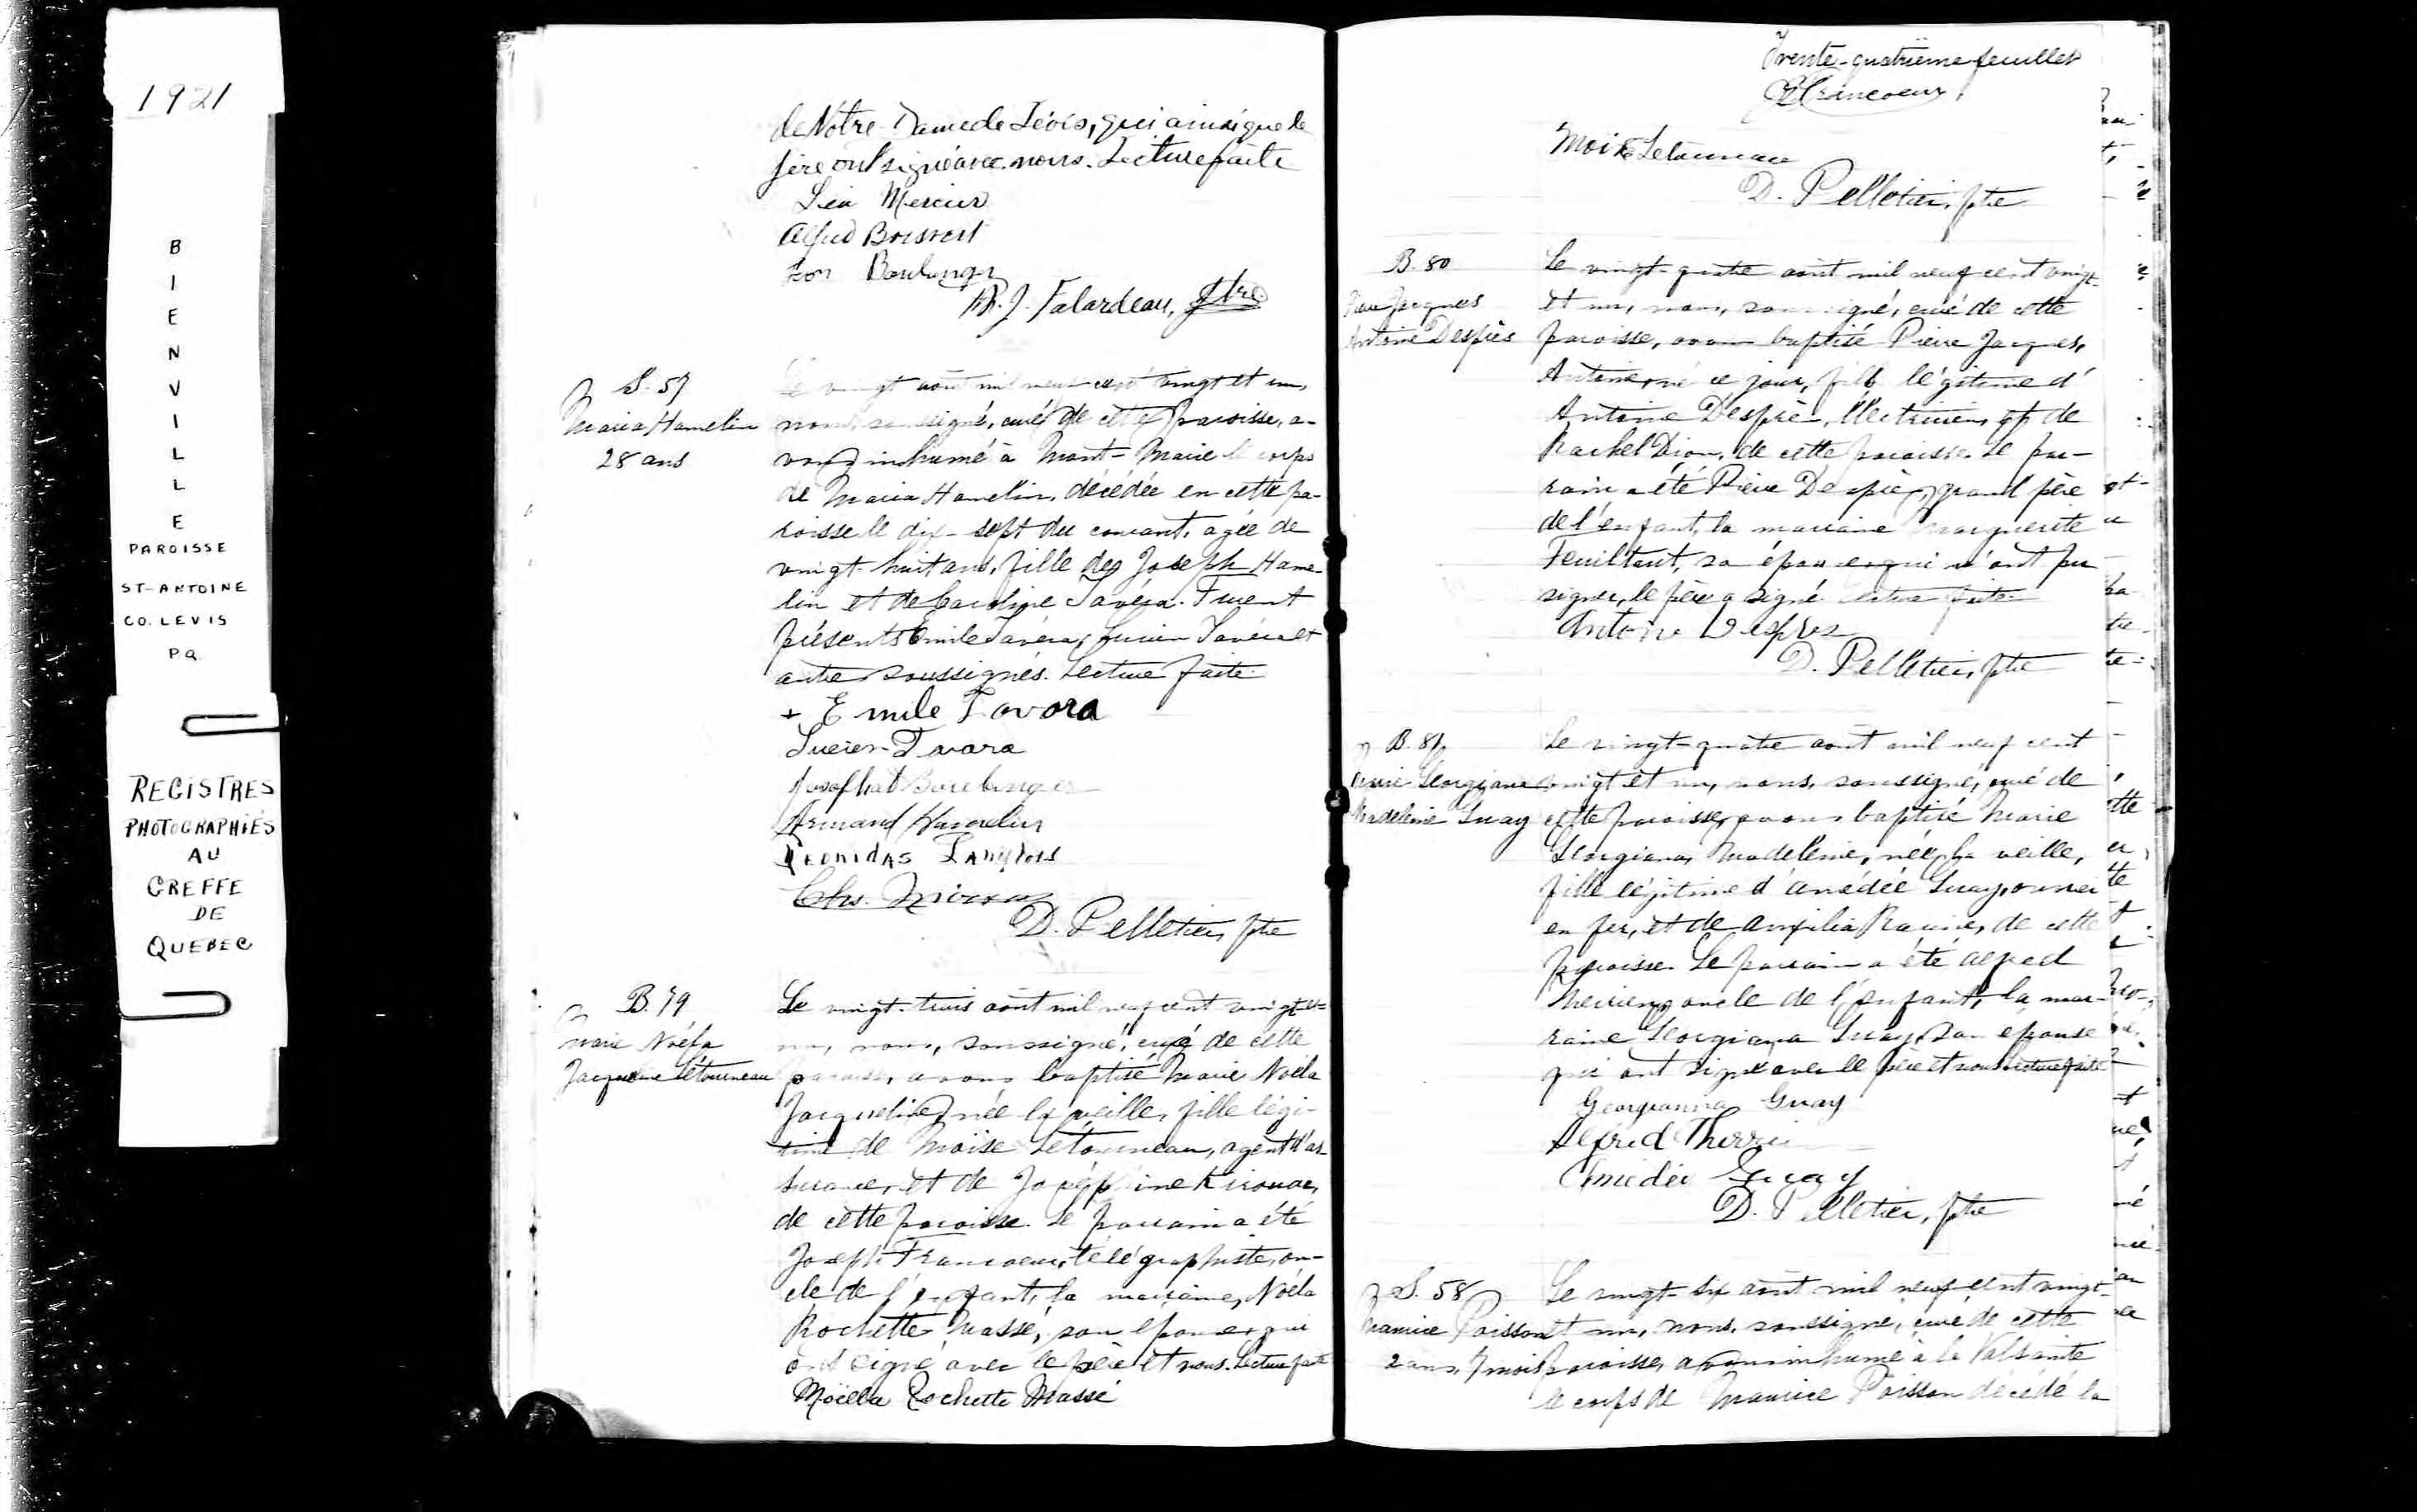 1921
BIENVILLE
PAROISSE
ST-ANTOINE
CO. LEVIS
PQ
REGISTRES
PHOTOGRAPHIÉS
AU
GREFFE
DE
QUEBEC
de Notre-Dame de Lévis, qui ainsi que le
père ont signé avec nous. Lecture faite
Léa Mercier
Alfred Boisvert
Boulanger
Ph. J. Falardeau, ptre
S. 57
Maria Hamelin
28 ans
Le vingt août mil neuf cent vingt et un,
nous, soussigné, curé de cette paroisse, a-
vons inhumé à Mont-Marie le corps
de Maria Hamelin, décédée en cette pa-
roisse le dix-sept du courant, agée de
vingt-huit ans, fille de Joseph Hame-
lin et de Caroline Tavéra. Furent
présents Emile Tavéra, Lucien Tavéra et
autres soussignés. Lecture faite.
+ Emile Tavora
Lucien Tvara
Josaphat Boulanger
Armand Hamelin
Leonidas Langlois
Chs.
D. Pelletier, ptre
B. 79
Marie Noëla
Jacqueline Létourneau
Le vingt-trois août mil neuf cent vingt et
un, nous, soussigné, curé de cette
paroisse, avons baptisé Marie Noëla
Jacqueline, née la veille, fille légi-
time de Moïse Létourneau, agent d'as-
surance, et de Joséphine Kirouac,
de cette paroisse. Le parrain a été
Joseph Francoeur, télégraphiste, on-
cle de l'enfant, la marraine, Noëla
Rochette Massé, son épouse, qui
ont signé avec le père et nous. Lecture faite
Noëlla Rochette Massé
Trente-quatrième feuillet
Moïse Letourneau
D. Pelletier, ptre
B. 80
Pierre Jacques
Antoine Desprès
Le vingt-quatre août mil neuf cent vingt-
et un, nous, soussigné, curé de cette
paroisse, avons baptisé Pierre Jacques,
Antoine, né ce jour, fils légitime d'
Antoine Desprès, électricien, et de
Rachel Dion, de cette paroisse. Le par-
rain a été Pierre Desprès, grand père
de l'enfant, la marraine Marguerite
Feuiltaut, son épouse qui n'ont pu
signer, le père a signé. Lecture faite.
Antoine Desprès
D. Pelletier, ptre
B. 81
Marie Georgiana
Madeleine Guay
Le vingt-quatre août mil neuf cent
vingt et un, nous, soussigné, curé de
cette paroisse, avons baptisé Marie
Georgiana, Madeleine, née la veille,
fille légitime d'Amédée Guay, ouvrier
en fer, et de Auxilia Racine, de cette
paroisse. Le parrain a été Alfred
Therrien, oncle de l'enfant, la mar-
raine Georgiana Guay, son épouse
qui ont signé avec le père et nous. Lecture faite
Georgianna Guay
Alfred Therrien
Amédée Guay
D. Pelletier, ptre
S. 58
Maurice Poisson
2 ans, 7 mois
Le vingt-six août mil neuf cent vingt-
et un, nous, soussigné, curé de cette
paroisse, avons inhumé à la Valsainte
le corps de Maurice Poisson décédé la